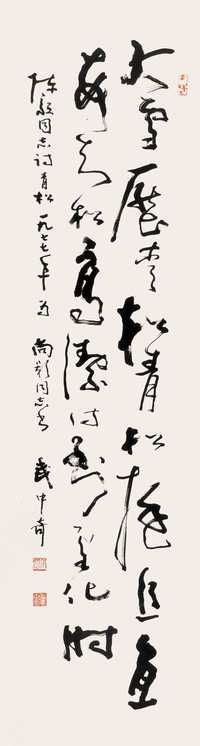 大雪壓青松青松挺且直
要知松高潔待到雪化時
陳毅同志詩青松一九七七年為尚同志書武中奇